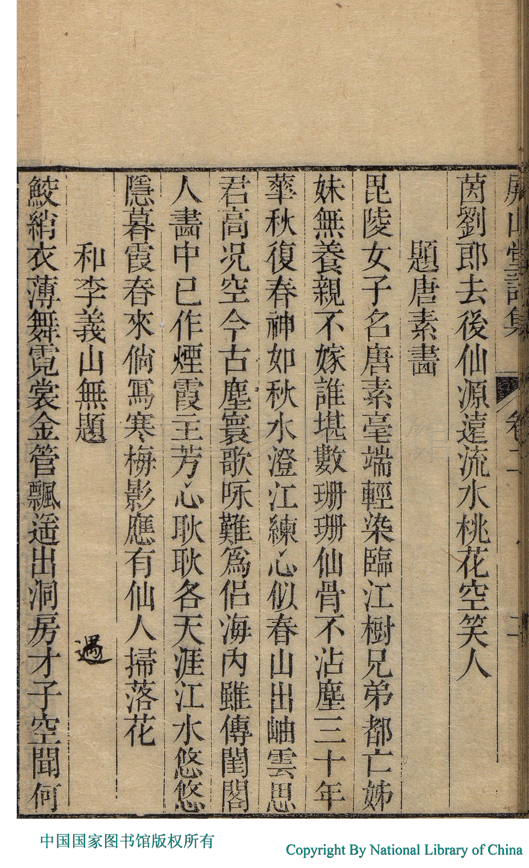 屏山堂詩集 卷二 二
茵劉郎去後仙源遠流水桃花空笑人
題唐素畵
毘陵女子名唐素毫端輕染臨江樹兄弟都亡姊
妹無養親不嫁誰堪數珊珊仙骨不沾塵三十年
華秋復春神如秋水澄江練心似春山出岫雲思
君高况空今古塵寰歌咏難爲侣海内雖傳閨閣
人畵中已作煙霞主芳心耿耿各天涯江水悠悠
隱暮霞春來倘寫寒梅影應有仙人掃落花
和李義山無題
鮫綃衣薄舞霓裳金管飄遥出洞房才子空聞何
過
中国国家图书馆版权所有
Copyright By National Library of China